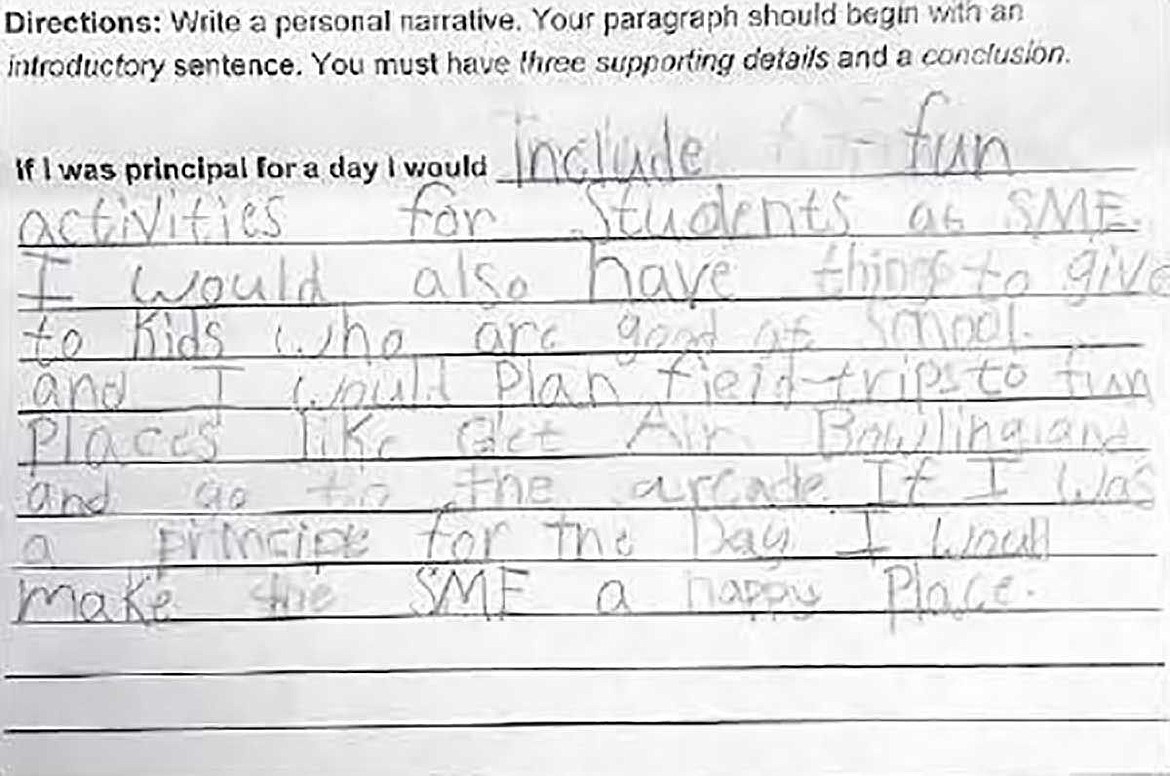 Directions: Write a personal narrative. Your paragraph should begin with an
introductory sentence. You must have three supporting details and a conclusion.
If I was principal for a day I would include fun
activities for Students at SME.
I would also have things to give
to Kids who are good at
and I would Plan field trips to fun
Places like Get Air Bowling and
and go to the arcade. If I was
a principle for the Day I would
make the SME a happy Place.